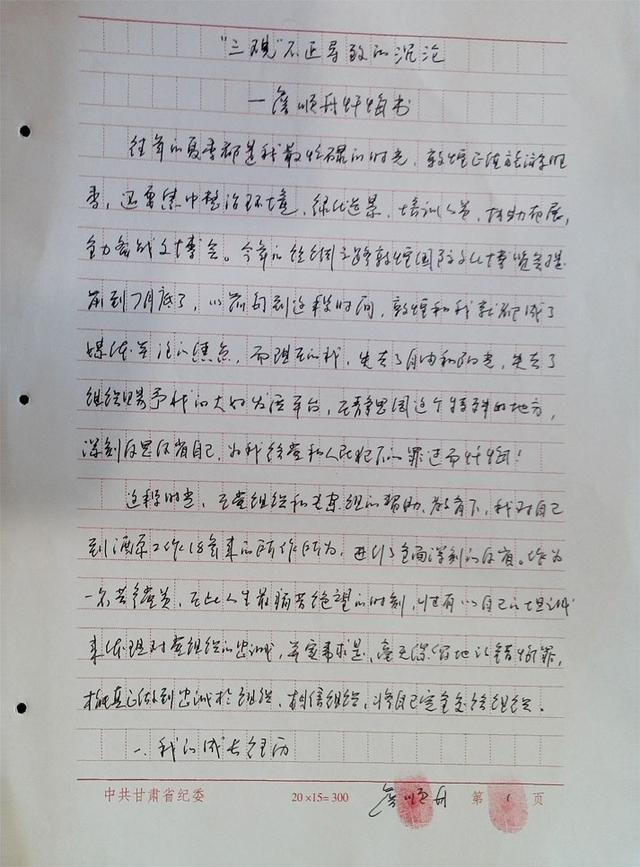 “三观”不正导致的沉沦
—詹顺舟忏悔书
往年的夏季都是我最忙碌的时光,敦煌正值旅游旺
季,还要集中整治环境,绿化造景,培训人员,
全力备战文博会。今年的丝绸之路敦煌国际文化博览会提
前到7月底了,以前每到这段时间,敦煌和我就都成了
媒体关注的焦点,而现在的我,失去了自由和阳光,失去了
组织赐予我的大好发展平台,在静思园这个特殊的地方,
深刻反思反省自己,为我给党和人民犯下的罪过而忏悔!
这段时光,在党组织和专案组的帮助、教育下,我对自己
到酒泉工作18年来的所作所为,进行了全面深刻的反省。作为
一名共产党员,在此人生最痛苦绝望的时刻,唯有以自己的坦诚
来体现对党组织的忠诚,并实事求是、毫无保留地认错悔罪,
真正做到忠诚于组织、相信组织,将自己完全交给组织。
一、我的成长经历
中共甘肃省纪委 20×15=300 詹顺舟 第 1 页